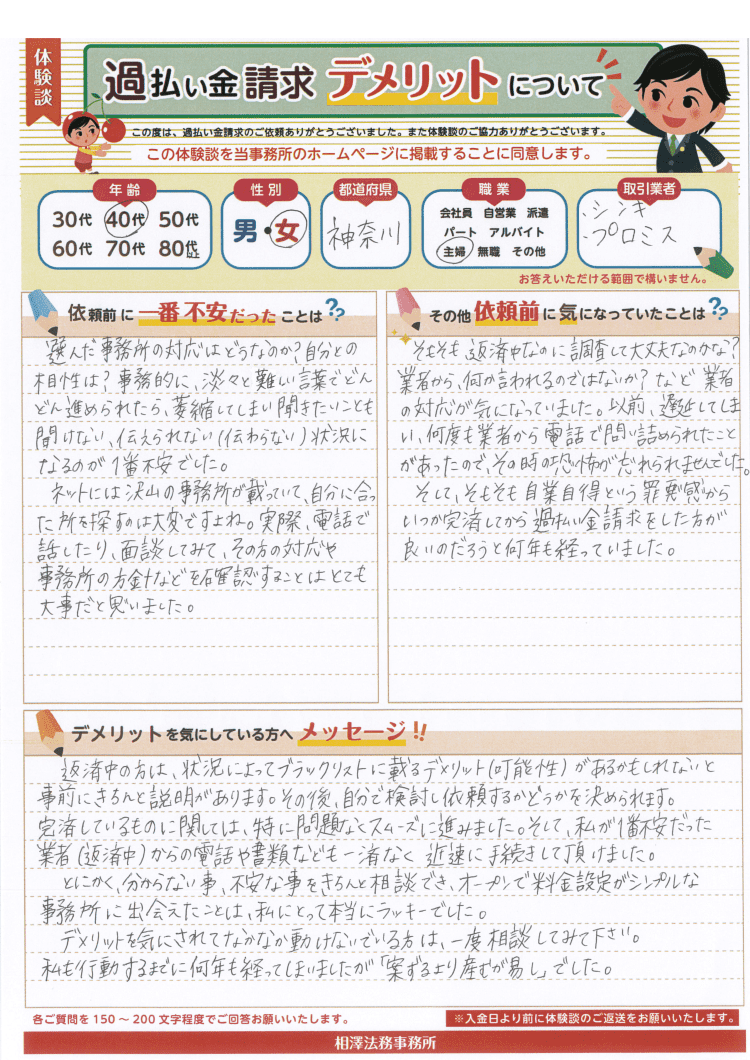 体験談
過払い金請求 デメリットについて
この度は、過払い金請求のご依頼ありがとうございました。また体験談のご協力ありがとうございます。
この体験談を当事務所のホームページに掲載することに同意します。
年齢
30代 40代 50代
60代 70代 80代以上
性別
男・女
都道府県
神奈川
職業
会社員 自営業 派遣
パート アルバイト
主婦 無職 その他
取引業者
・シンキ
・プロミス
お答えいただける範囲で構いません。
依頼前に一番不安だったことは??
選んだ事務所の対応はどうなのか?自分との
相性は?事務的に、淡々と難しい言葉でどん
どん進められたら、萎縮してしまい聞きたいことも
聞けない、伝えられない(伝わらない)状況に
なるのが1番不安でした。
ネットには沢山の事務所が載っていて、自分に合っ
た所を探すのは大変ですよね。実際、電話で
話したり、面談してみて、その方の対応や
事務所の方針などを確認することはとても
大事だと思いました。
その他依頼前に気になっていたことは??
そもそも返済中なのに調査して大丈夫なのかな?
業者から、何か言われるのではないか?など業者
の対応が気になっていました。以前、遅延してしま
い、何度も業者から電話で問い詰められたこと
があったので、その時の恐怖が忘れられませんでした。
そして、そもそも自業自得という罪悪感から
いつか完済してから過払い金請求をした方が
良いのだろうと何年も経っていました。
デメリットを気にしている方へメッセージ!!
返済中の方は、状況によってブラックリストに載るデメリット(可能性)があるかもしれないと
事前にきちんと説明があります。その後、自分で検討し依頼するかどうかを決められます。
完済しているものに関しては、特に問題なくスムーズに進みました。そして、私が1番不安だった
業者(返済中)からの電話や書類なども一済なく 迅速に手続きして頂けました。
とにかく、分からない事、不安な事をきちんと相談でき、オープンで料金設定がシンプルな
事務所に出会えたことは、私にとって本当にラッキーでした。
デメリットを気にされてなかなか動けないでいる方は、一度相談してみて下さい。
私も行動するまでに何年も経ってしまいましたが「案ずるより産むが易し」でした。
各ご質問を150～200文字程度でご回答お願いいたします。
※入金日より前に体験談のご返送をお願いいたします。
相澤法務事務所